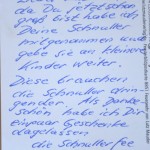 Da Du jetzt schon
groß bist habe ich
Deine Schnuller
mitgenommen und
gebe sie an kleinere
Kinder weiter.
Diese brauchen
die Schnuller drin-
gender. Als Danke-
schön habe ich Dir
ein paar Geschenke
dagelassen
die Schnullerfee